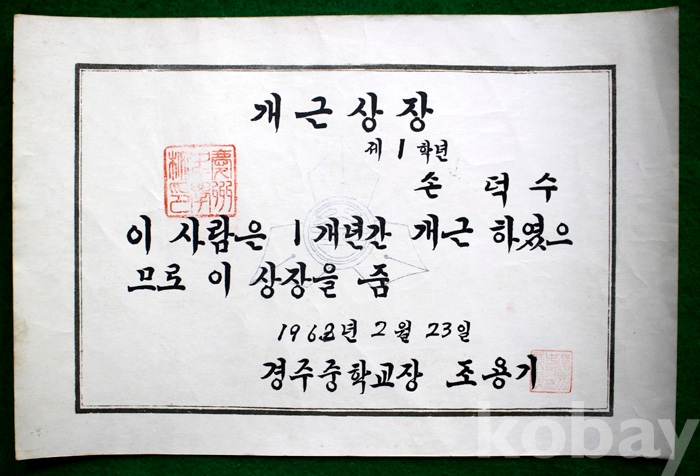 개근상장
제 1 학년
손 덕 수
이 사람은 1개년간 개근 하였으
므로 이 상장을 줌
1962년 2월 23일
경주중학교장 조용기
kobay